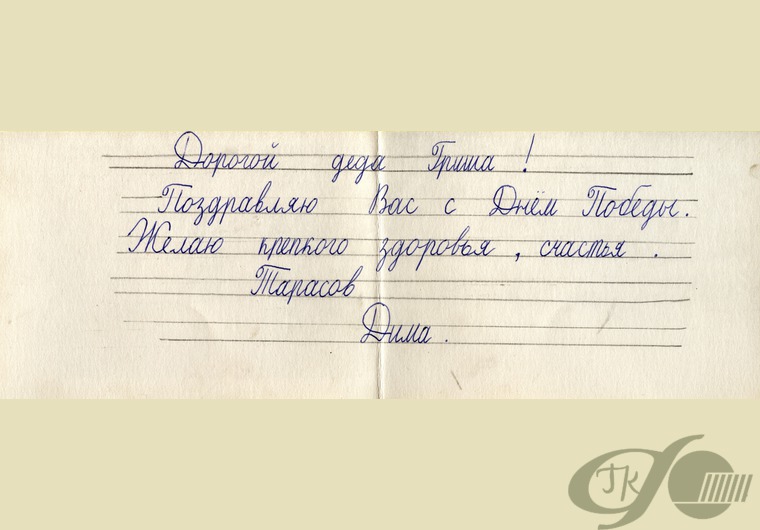 Дорогой деда Гриша !
Поздравляю Вас с Днём Победы.
Желаю крепкого здоровья , счастья .
Тарасов
Дима .
ГК